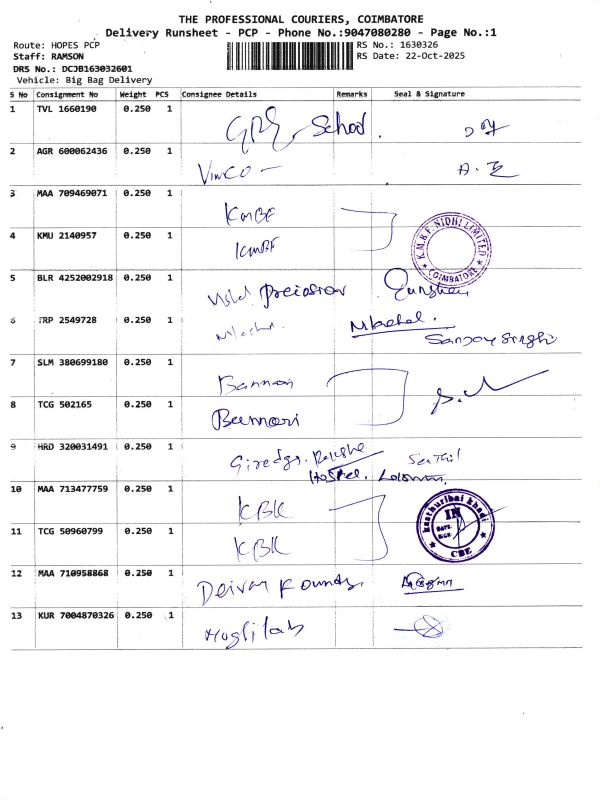 THE PROFESSIONAL COURIERS, COIMBATORE
Delivery Runsheet - PCP - Phone No.:9047080280 - Page No.:1
Route: HOPES PCP
Staff: RAMSON
DRS No.: DCJB163032601
Vehicle: Big Bag Delivery
RS No.: 1630326
RS Date: 22-Oct-2025
S No Consignment No Weight PCS Consignee Details Remarks Seal & Signature
1 TVL 1660190 0.250 1 School
2 AGR 600062436 0.250 1 Vimco
3 MAA 709469071 0.250 1 KMBF
4 KMU 2140957 0.250 1 KMBF
K.M.B.F. NIDHI LIMITED
COIMBATORE
5 BLR 4252002918 0.250 1
6 TRP 2549728 0.250 1 Sanjoy Singh
7 SLM 380699180 0.250 1 Bannari
8 TCG 502165 0.250 1 Bannari
9 HRD 320031491 0.250 1
Hostel.
10 MAA 713477759 0.250 1 KBK
11 TCG 50960799 0.250 1 KBK
kasthuribai khadi
IN
DATE
SIGN
CBE
12 MAA 710958868 0.250 1
13 KUR 7004870326 0.250 1